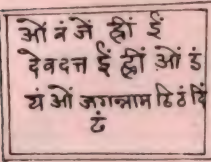 ओं वं जें ह्रीं ईं
देवदत्त ईं ह्रीं ओं डं
यं ओं जगन्नाम ठि ठं ठिं
ठं